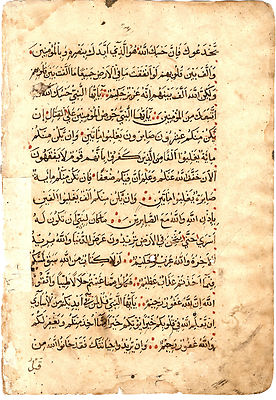 يَخْدَعُوكَ فَاِنَّ حَسْبَكَ اللّٰهُ هُوَ الَّذِي اَيَّدَكَ بِنَصْرِهِ وَبِالْمُؤْمِنِينَ
وَاَلَّفَ بَيْنَ قُلُوبِهِمْ لَوْ اَنْفَقْتَ مَا فِي الْاَرْضِ جَمِيعًا مَا اَلَّفْتَ بَيْنَ قُلُوبِهِمْ
وَلٰكِنَّ اللّٰهَ اَلَّفَ بَيْنَهُمْ اِنَّهُ عَزِيزٌ حَكِيمٌ يَا اَيُّهَا النَّبِيُّ حَسْبُكَ اللّٰهُ وَمَنِ
اتَّبَعَكَ مِنَ الْمُؤْمِنِينَ يَا اَيُّهَا النَّبِيُّ حَرِّضِ الْمُؤْمِنِينَ عَلَى الْقِتَالِ اِنْ
يَكُنْ مِنْكُمْ عِشْرُونَ صَابِرُونَ يَغْلِبُوا مِائَتَيْنِ وَاِنْ يَكُنْ مِنْكُمْ
مِائَةٌ يَغْلِبُوا اَلْفًا مِنَ الَّذِينَ كَفَرُوا بِاَنَّهُمْ قَوْمٌ لَا يَفْقَهُونَ
اَلْاٰنَ خَفَّفَ اللّٰهُ عَنْكُمْ وَعَلِمَ اَنَّ فِيكُمْ ضَعْفًا فَاِنْ يَكُنْ مِنْكُمْ مِائَةٌ
صَابِرَةٌ يَغْلِبُوا مِائَتَيْنِ وَاِنْ يَكُنْ مِنْكُمْ اَلْفٌ يَغْلِبُوا اَلْفَيْنِ
بِاِذْنِ اللّٰهِ وَاللّٰهُ مَعَ الصَّابِرِينَ مَا كَانَ لِنَبِيٍّ اَنْ يَكُونَ لَهُ
اَسْرٰى حَتّٰى يُثْخِنَ فِي الْاَرْضِ تُرِيدُونَ عَرَضَ الدُّنْيَا وَاللّٰهُ يُرِيدُ
الْاٰخِرَةَ وَاللّٰهُ عَزِيزٌ حَكِيمٌ لَوْلَا كِتَابٌ مِنَ اللّٰهِ سَبَقَ لَمَسَّكُمْ
فِيمَا اَخَذْتُمْ عَذَابٌ عَظِيمٌ فَكُلُوا مِمَّا غَنِمْتُمْ حَلَالًا طَيِّبًا وَاتَّقُوا
اللّٰهَ اِنَّ اللّٰهَ غَفُورٌ رَحِيمٌ يَا اَيُّهَا النَّبِيُّ قُلْ لِمَنْ فِي اَيْدِيكُمْ مِنَ الْاَسْرٰى
اِنْ يَعْلَمِ اللّٰهُ فِي قُلُوبِكُمْ خَيْرًا يُؤْتِكُمْ خَيْرًا مِمَّا اُخِذَ مِنْكُمْ وَيَغْفِرْ لَكُمْ
وَاللّٰهُ غَفُورٌ رَحِيمٌ وَاِنْ يُرِيدُوا خِيَانَتَكَ فَقَدْ خَانُوا اللّٰهَ مِنْ
قبل